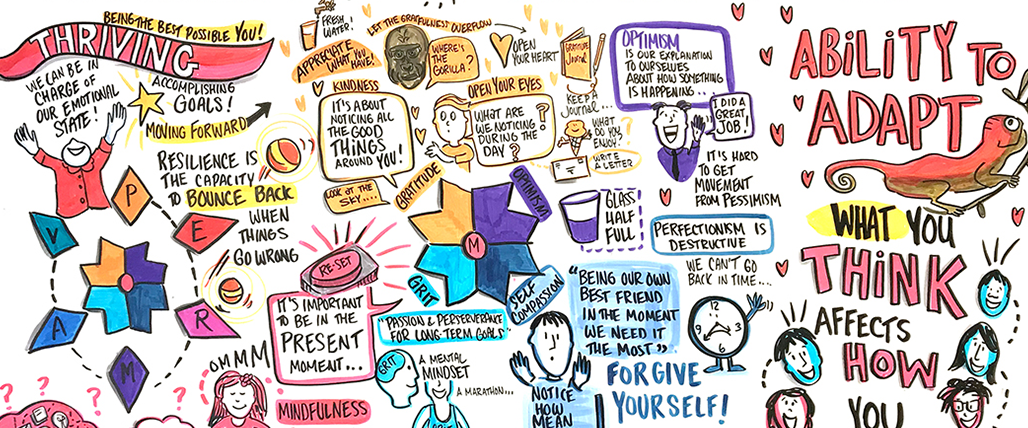 BEING THE BEST POSSIBLE YOU!
THRIVING
WE CAN BE IN
CHARGE OF
OUR EMOTIONAL
STATE!
ACCOMPLISHING
GOALS!
MOVING FORWARD
RESILIENCE IS
THE CAPACITY
TO BOUNCE BACK
WHEN
THINGS
GO WRONG
P
E
R
M
A
V
FRESH
WATER!
APPRECIATE
WHAT YOU
HAVE!
LET THE GRATEFULNESS OVERFLOW
WHERE'S
THE
GORILLA?
OPEN
YOUR HEART
GRATITUDE
Journal
KEEP A
JOURNAL...
KINDNESS
IT'S ABOUT
NOTICING ALL
THE GOOD
THINGS
AROUND YOU!
LOOK AT THE
SKY....
OPEN YOUR EYES
WHAT ARE
WE NOTICING
DURING THE
DAY?
?
WHAT
DO YOU
ENJOY?
WRITE
A LETTER
GRATITUDE
OPTIMISM
M
GRIT
SELF
COMPASSION
OPTIMISM
IS OUR EXPLANATION
TO OURSELVES
ABOUT HOW SOMETHING
IS HAPPENING...
I DID A
GREAT
JOB!
IT'S HARD
TO GET
MOVEMENT
FROM PESSIMISM
GLASS
HALF
FULL
PERFECTIONISM IS
DESTRUCTIVE
WE CAN'T GO
BACK IN TIME...
12
3
6
9
RE-SET
IT'S IMPORTANT
TO BE IN THE
PRESENT
MOMENT...
OMMM
MINDFULNESS
? ? ? ?
"PASSION & PERSERVERANCE
FOR LONG-TERM GOALS"
GRIT
A MENTAL
MINDSET
A MARATHON...
"BEING OUR OWN
BEST FRIEND
IN THE MOMENT
WE NEED IT
THE MOST"
NOTICE
HOW
MEAN
FORGIVE
YOURSELF!
ABILITY TO
ADAPT
WHAT YOU
THINK
AFFECTS
HOW
YOU